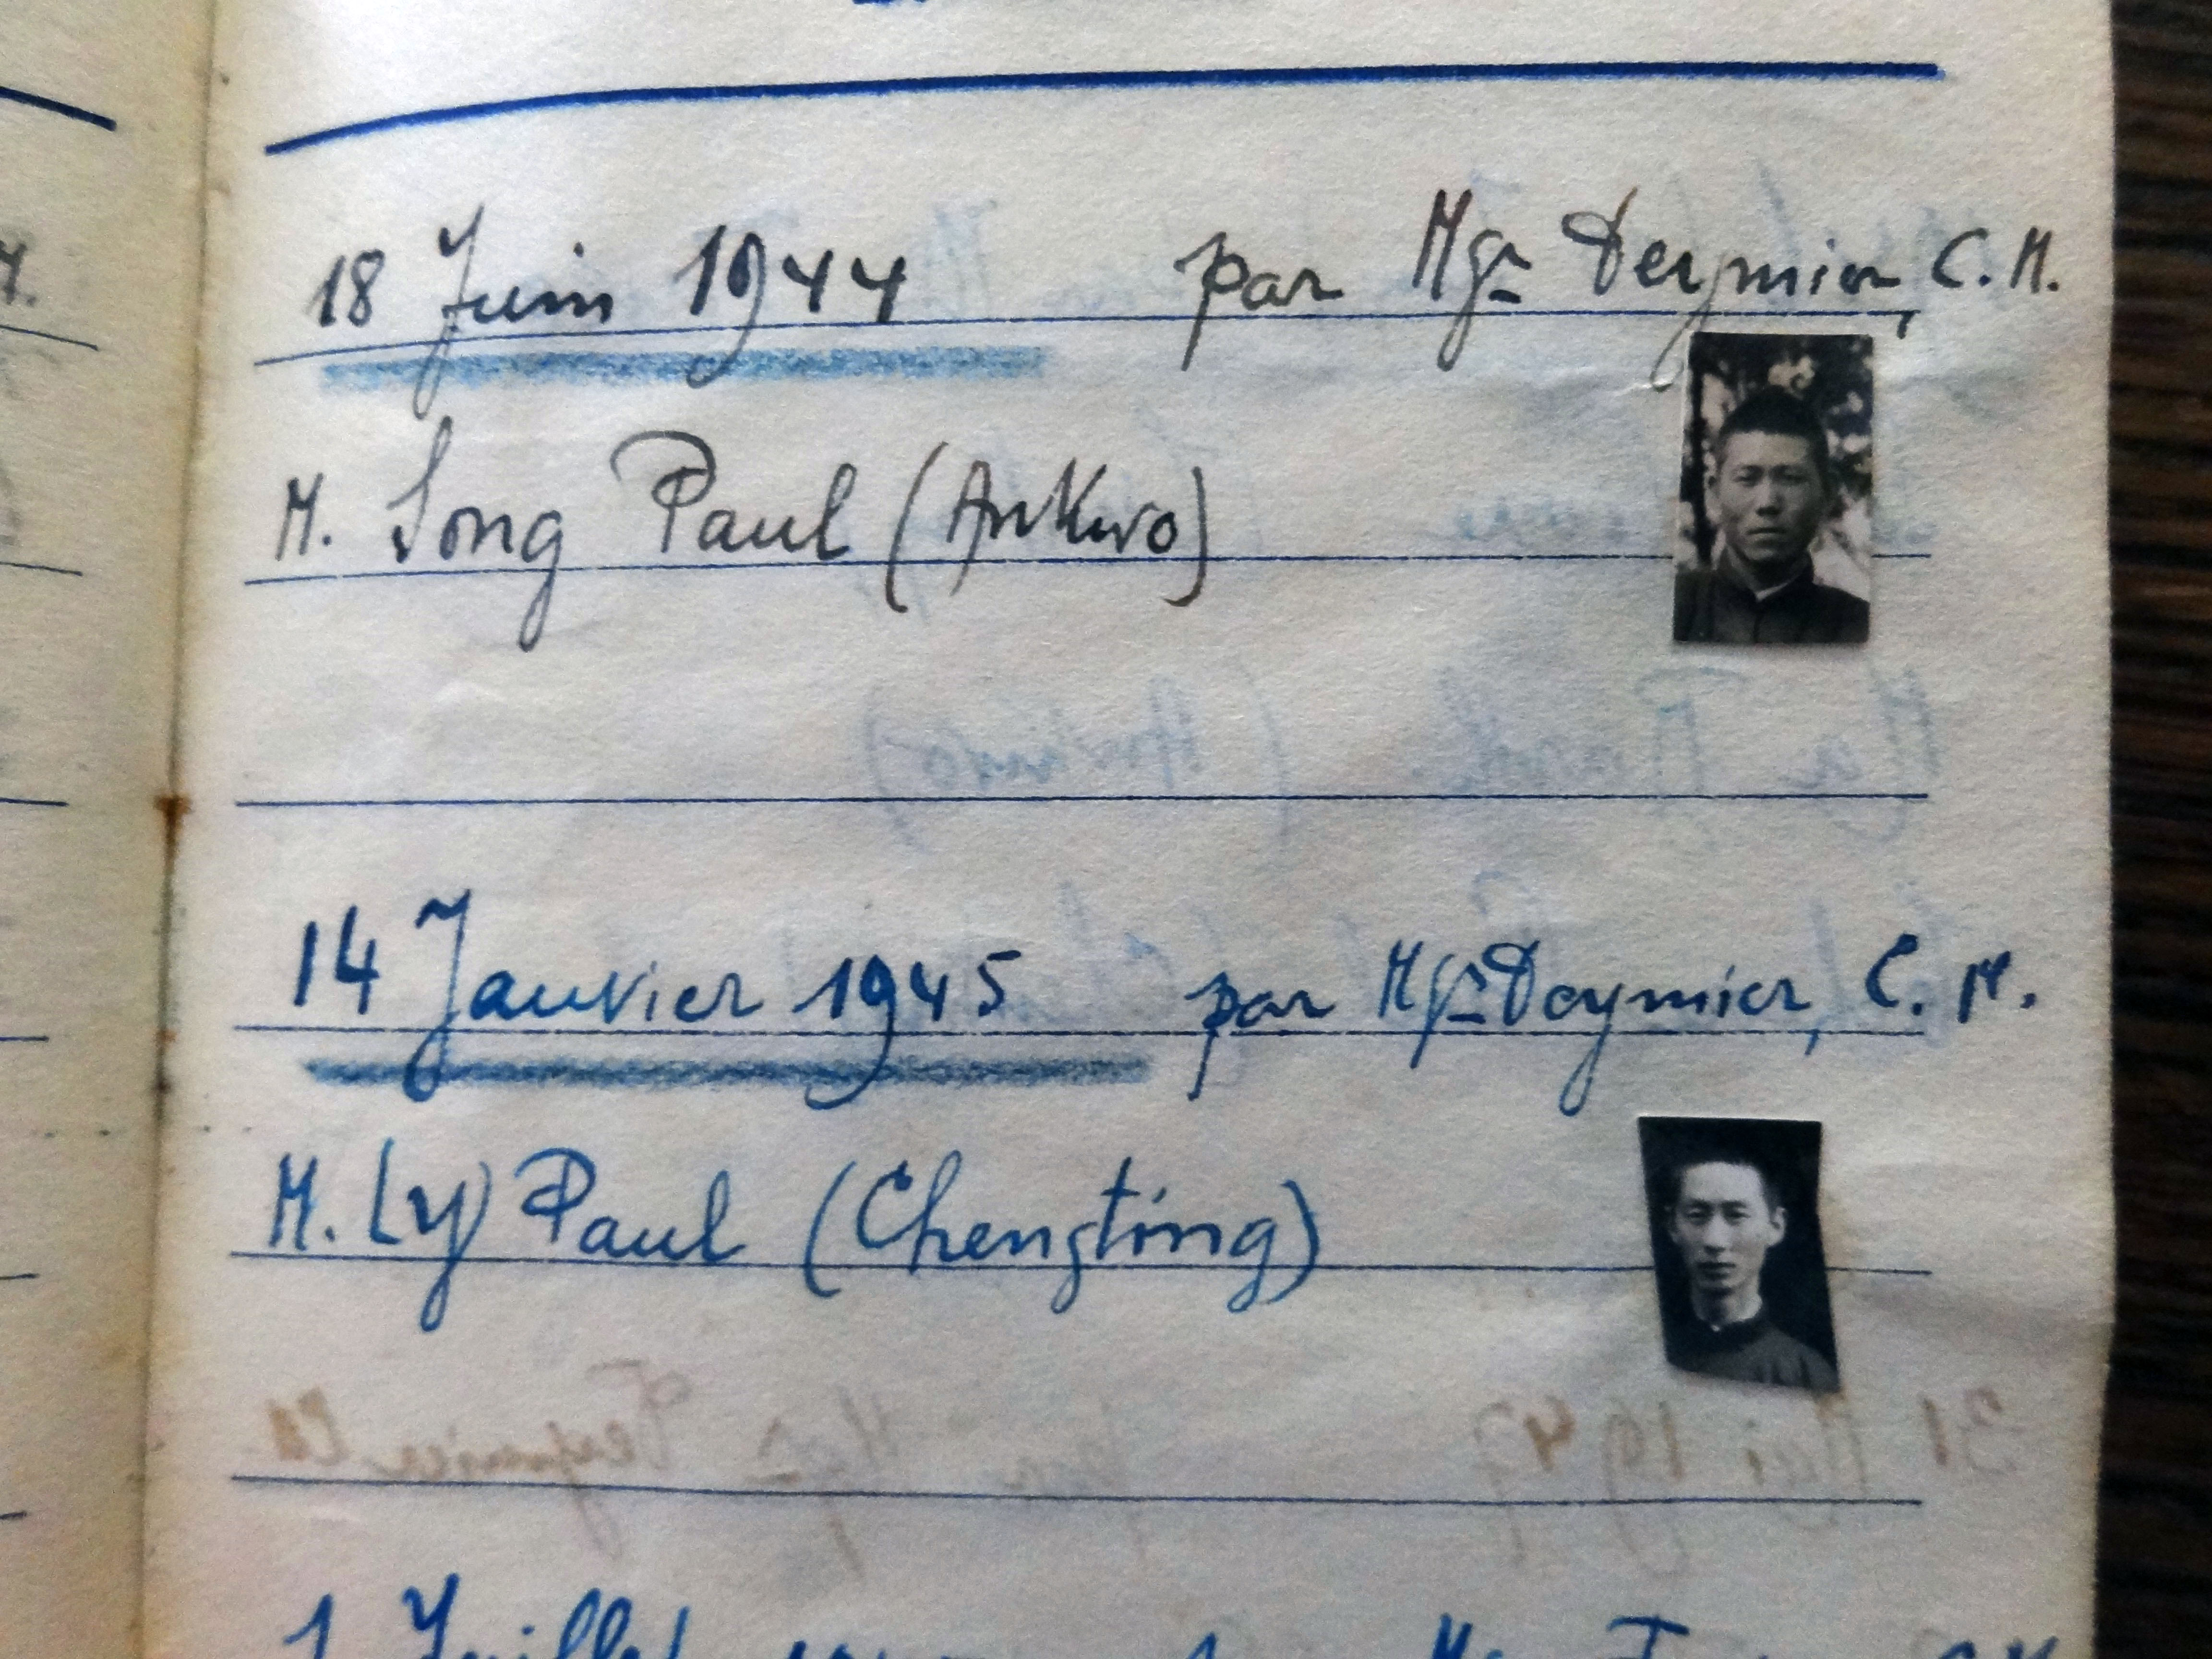 18 Juin 1944 par Mgr Deymier, C.M.
M. Song Paul (Ankwo)
14 Janvier 1945 par Mgr Deymier, C.M.
M. Ly Paul (Chengting)
1 Juillet